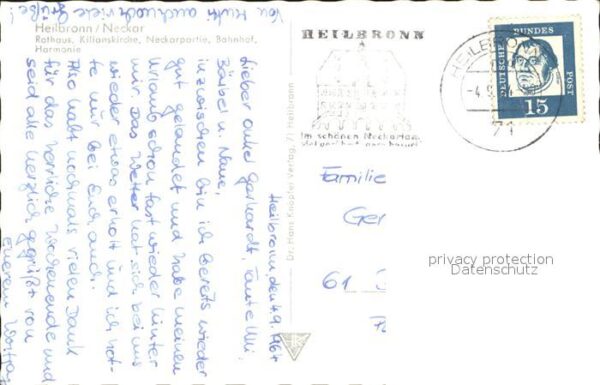 Von Mutti auch noch viele
Grüße!
Heilbronn/Neckar
Rathaus, Kilianskirche, Neckarpartie, Bahnhof,
Harmonie
Heilbronn, den 4.9.1964
Lieber Onkel Gerhardt, Tante Elli,
Bärbel u. Nane,
inzwischen bin ich bereits wieder
gut gelandet und habe meinen
Urlaub schon fast wieder hinter
mir. Das Wetter hat sich bei uns
wieder etwas erholt und ich hof-
te nur bei Euch auch.
Also habt nochmals vielen Dank
für das herrliche Wochenende und
seid alle herzlich gegrüßt von
Eurem Wolfgang
Dr. Hans Knöpfel Verlag, 717 Heilbronn
HEILBRONN
Im schönen Neckartal
HEILBRO
-4.9.
71
DEUTSCHE BUNDES POST
15
Familie
Ger
61
privacy protection
Datenschutz